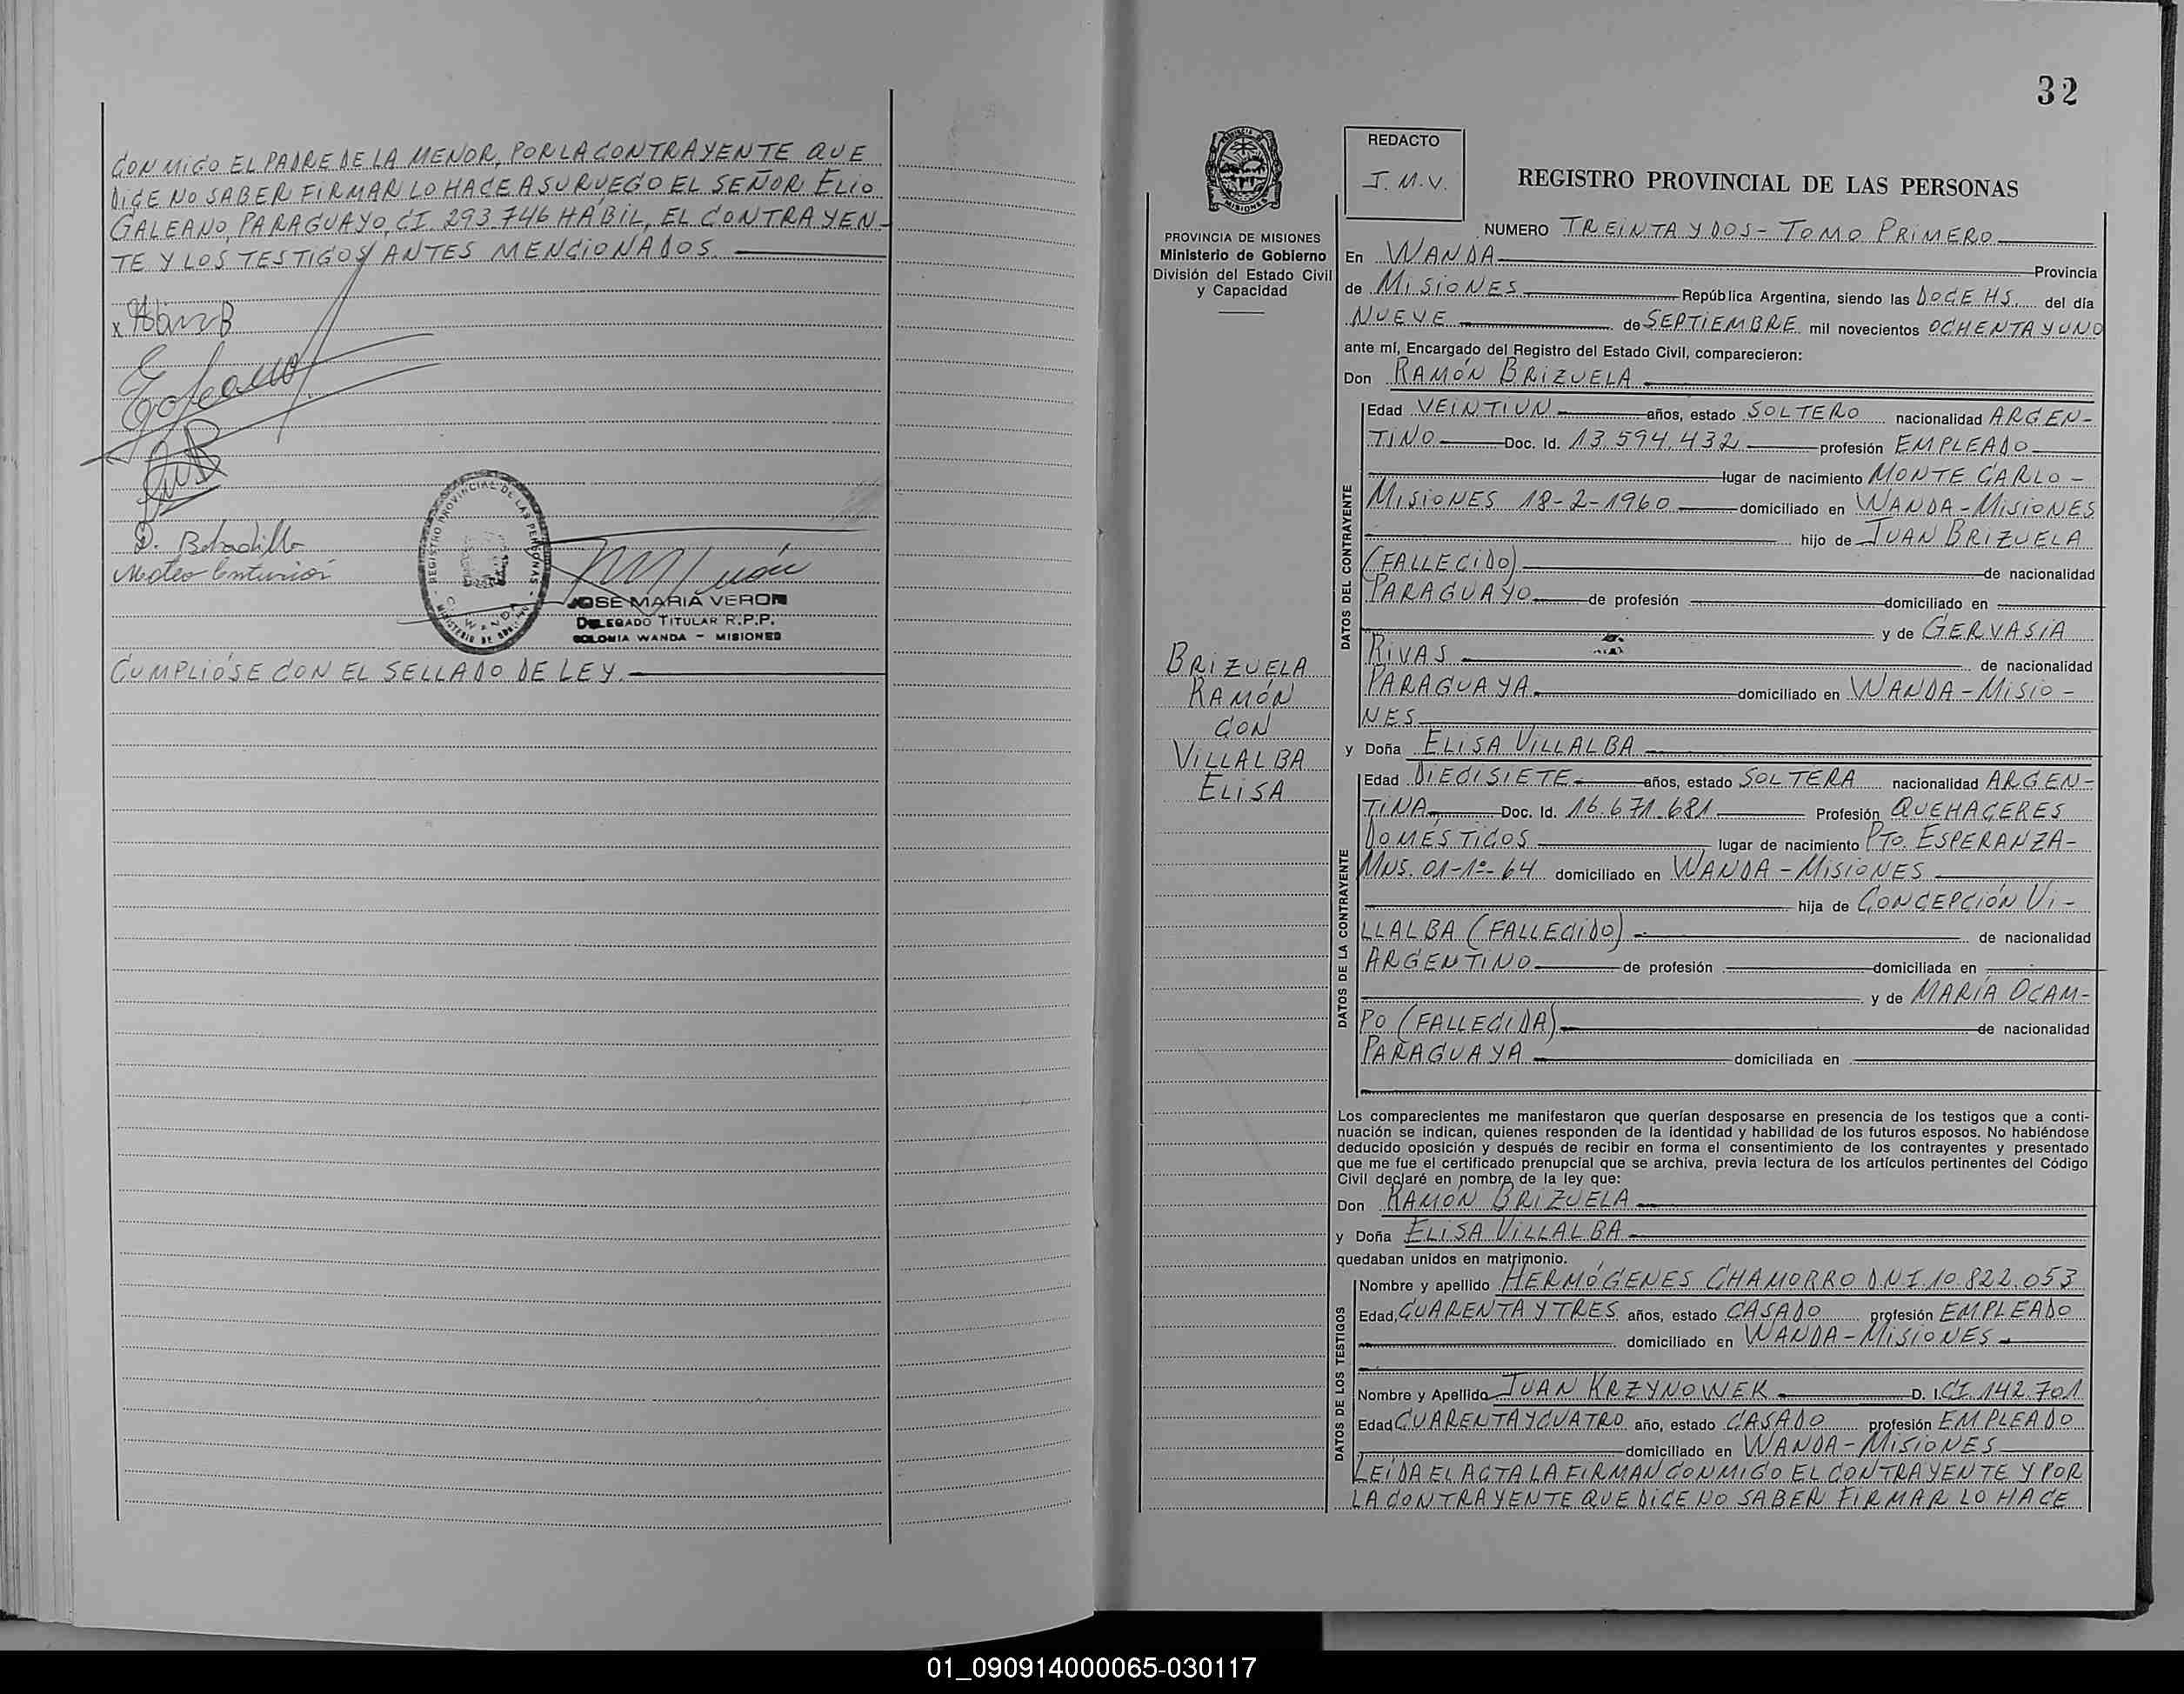 CONMIGO EL PADRE DE LA MENOR, POR LA CONTRAYENTE QUE
DICE NO SABER FIRMAR LO HACE A SU RUEGO EL SEÑOR ELIO
GALEANO, PARAGUAYO, CI. 293.746 HÁBIL, EL CONTRAYEN-
TE Y LOS TESTIGOS ANTES MENCIONADOS.
D. Bobadilla
Mateo Centurión
REGISTRO PROVINCIAL DE LAS PERSONAS
WANDA
JOSE MARIA VERON
DELEGADO TITULAR R.P.P.
COLONIA WANDA - MISIONES
CUMPLIÓSE CON EL SELLADO DE LEY.
32
PROVINCIA DE MISIONES
Ministerio de Gobierno
División del Estado Civil
y Capacidad
BRIZUELA
RAMÓN
CON
VILLALBA
ELISA
REDACTO
J.M.V.
REGISTRO PROVINCIAL DE LAS PERSONAS
NUMERO TREINTA Y DOS - TOMO PRIMERO
En WANDA Provincia
de MISIONES República Argentina, siendo las DOCE HS. del día
NUEVE de SEPTIEMBRE mil novecientos OCHENTA Y UNO
ante mí, Encargado del Registro del Estado Civil, comparecieron:
Don RAMÓN BRIZUELA
DATOS DEL CONTRAYENTE
Edad VEINTIUN años, estado SOLTERO nacionalidad ARGEN-
TINO Doc. Id. 13.594.432 profesión EMPLEADO
lugar de nacimiento MONTE CARLO -
MISIONES 18-2-1960 domiciliado en WANDA - MISIONES
hijo de JUAN BRIZUELA
(FALLECIDO) de nacionalidad
PARAGUAYO de profesión domiciliado en
y de GERVASIA
RIVAS de nacionalidad
PARAGUAYA domiciliado en WANDA - MISIO-
NES
y Doña ELISA VILLALBA
DATOS DE LA CONTRAYENTE
Edad DIECISIETE años, estado SOLTERA nacionalidad ARGEN-
TINA Doc. Id. 16.671.681 Profesión QUEHACERES
DOMÉSTICOS lugar de nacimiento PTO. ESPERANZA-
MNS. 01-1º-64 domiciliado en WANDA - MISIONES
hija de CONCEPCIÓN VI-
LLALBA (FALLECIDO) de nacionalidad
ARGENTINO de profesión domiciliada en
y de MARÍA OCAM-
PO (FALLECIDA) de nacionalidad
PARAGUAYA domiciliada en
Los comparecientes me manifestaron que querían desposarse en presencia de los testigos que a conti-
nuación se indican, quienes responden de la identidad y habilidad de los futuros esposos. No habiéndose
deducido oposición y después de recibir en forma el consentimiento de los contrayentes y presentado
que me fue el certificado prenupcial que se archiva, previa lectura de los artículos pertinentes del Código
Civil declaré en nombre de la ley que:
Don RAMÓN BRIZUELA
y Doña ELISA VILLALBA
quedaban unidos en matrimonio.
DATOS DE LOS TESTIGOS
Nombre y apellido HERMÓGENES CHAMORRO D.N.I. 10.822.053
Edad CUARENTA Y TRES años, estado CASADO profesión EMPLEADO
domiciliado en WANDA - MISIONES
Nombre y Apellido JUAN KRZYNOWEK D. I. CI. 142.701
Edad CUARENTA Y CUATRO año, estado CASADO profesión EMPLEADO
domiciliado en WANDA - MISIONES
LEÍDA EL ACTA LA FIRMAN CONMIGO EL CONTRAYENTE Y POR
LA CONTRAYENTE QUE DICE NO SABER FIRMAR LO HACE
01_090914000065-030117